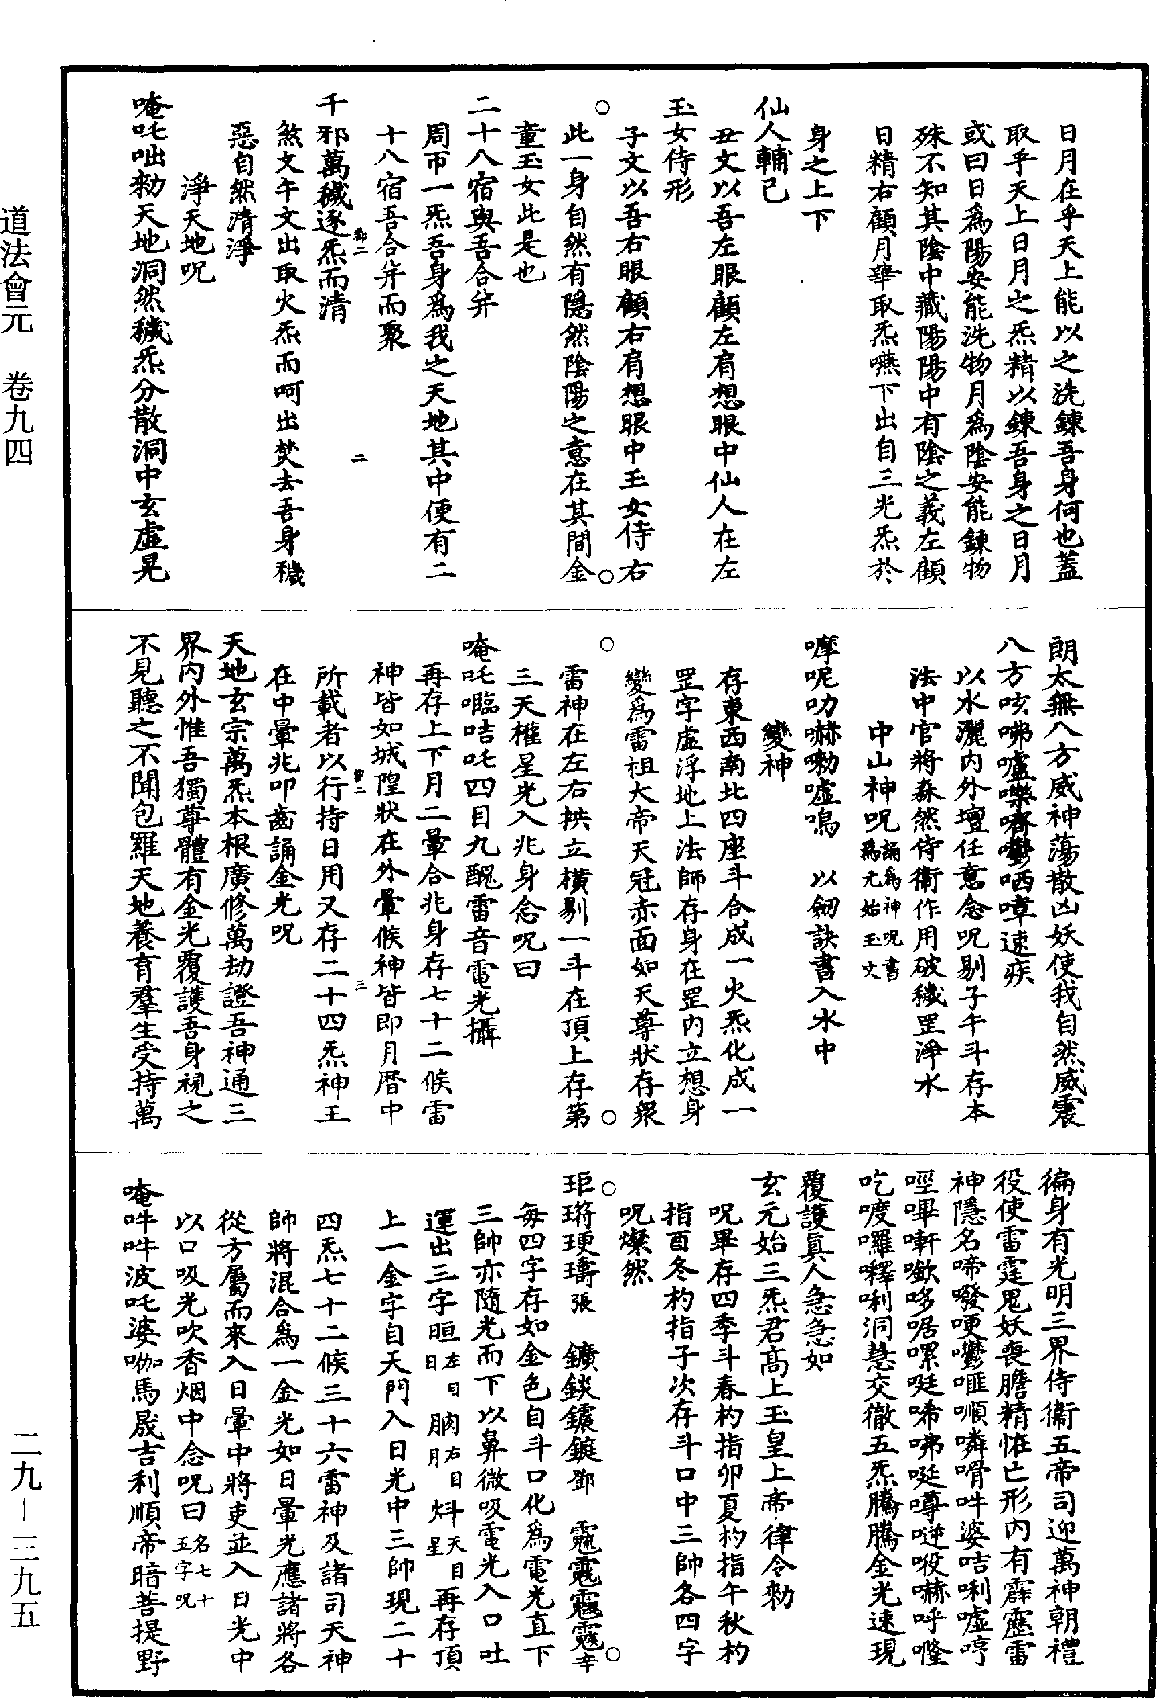 日月在乎天上能以之洗鍊吾身何也蓋
取乎天上日月之炁精以鍊吾身之日月
或曰日為陽安能洗物月為陰安能鍊物
殊不知其陰中藏陽陽中有陰之義左顧
日精右顧月華取炁嚥下出自三光炁於
身之上下
仙人輔己
丑文以吾左眼顧左肩想眼中仙人在左
玉女侍形
子文以吾右眼顧右肩想眼中玉女侍右
此一身自然有隱然陰陽之意在其間金
童玉女此是也
二十八宿與吾合并
周帀一炁吾身為我之天地其中便有二
十八宿吾合并而聚
千邪萬穢逐炁而清
煞文午文出取火炁而呵出焚去吾身穢
惡自然清淨
淨天地呪
唵吒咄勑天地洞然穢炁分散洞中玄虛晃
朗太無八方威神蕩散凶妖使我自然威震
八方咳咈嚧速疾
以水灑內外壇任意念呪剔子午斗存本
法中官將森然侍衛作用破穢罡淨水
中山神呪誦為神呪書為元始玉文
嚤呢叻嚇嘞噓嗚　以劒訣書入水中
變神
存東西南北四座斗合成一火炁化成一
罡字虛浮地上法師存身在罡內立想身
變為雷祖大帝天冠赤面如天尊狀存眾
雷神在左右拱立橫剔一斗在頂上存第
三天權星光入兆身念呪曰
唵吒囇咭吒四目九醜雷音電光攝
再存上下月二暈合兆身存七十二候雷
神皆如城隍狀在外暈候神皆即月曆中
所載者以行持日用又存二十四炁神王
在中暈兆叩齒誦金光呪
天地玄宗萬炁本根廣修萬劫證吾神通三
界內外惟吾獨尊體有金光覆護吾身視之
不見聽之不聞包羅天地養育羣生受持萬
徧身有光明三界侍衛五帝司迎萬神朝禮
役使雷霆鬼妖喪膽精恠亡形內有霹靂雷
神隱名
吃嚘囉釋唎洞慧交徹五炁騰騰金光速現
覆護真人急急如
玄元始三炁君高上玉皇上帝律令勑
呪畢存四季斗春杓指卯夏杓指午秋杓
指酉冬杓指子次存斗口中三帥各四字
呪燦然
每四字存如金色自斗口化為電光直下
三帥亦隨光而下以鼻微吸電光入口吐
運出三字晅左目日朒右目月炓天目星再存頂
上一金字自天門入日光中三帥現二十
四炁七十二候三十六雷神及諸司天神
師將混合為一金光如日暈光應諸將各
從方屬而來入日暈中將吏並入日光中
以口吸光吹香烟中念呪曰名七十五字呪
唵吽吽波吒婆咖馬晟吉利順帝暗菩提野
道法會元　卷九四
二九—三九五